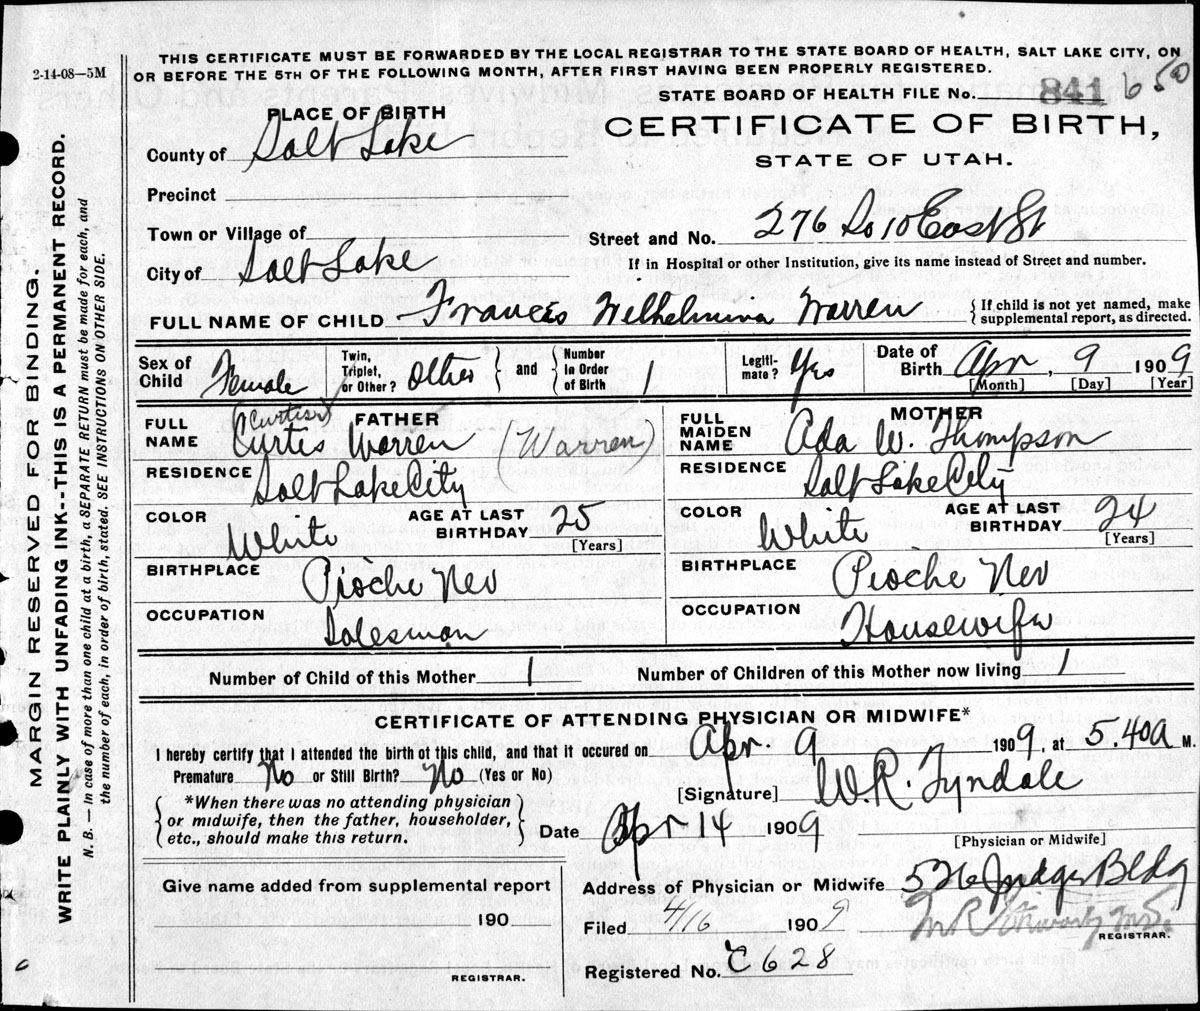 2-14-08—5M
THIS CERTIFICATE MUST BE FORWARDED BY THE LOCAL REGISTRAR TO THE STATE BOARD OF HEALTH, SALT LAKE CITY, ON
OR BEFORE THE 5TH OF THE FOLLOWING MONTH, AFTER FIRST HAVING BEEN PROPERLY REGISTERED.
STATE BOARD OF HEALTH FILE No. 841 650
PLACE OF BIRTH
CERTIFICATE OF BIRTH,
STATE OF UTAH.
County of Salt Lake
Precinct
Town or Village of
Street and No. 276 So 10 East St
City of Salt Lake
If in Hospital or other Institution, give its name instead of Street and number.
FULL NAME OF CHILD Frances Wilhelmina Warren
{If child is not yet named, make
supplemental report, as directed.
Sex of Child Female
Twin, Triplet, or Other? Other
and
Number In Order of Birth 1
Legitimate? Yes
Date of Birth Apr, 9 1909
[Month] [Day] [Year]
FATHER
FULL NAME (Curtiss) Curtis Warren (Warren)
RESIDENCE Salt Lake City
COLOR White
AGE AT LAST BIRTHDAY 25
[Years]
BIRTHPLACE Pioche Nev
OCCUPATION Salesman
MOTHER
FULL MAIDEN NAME Ada W. Thompson
RESIDENCE Salt Lake City
COLOR White
AGE AT LAST BIRTHDAY 24
[Years]
BIRTHPLACE Pioche Nev
OCCUPATION Housewife
Number of Child of this Mother 1
Number of Children of this Mother now living 1
CERTIFICATE OF ATTENDING PHYSICIAN OR MIDWIFE*
I hereby certify that I attended the birth of this child, and that it occured on Apr. 9 1909, at 5.40a M.
Premature No or Still Birth? No (Yes or No)
[Signature] W.R. Tyndale
{*When there was no attending physician
or midwife, then the father, householder,
etc., should make this return.}
Date Apr 14 1909
[Physician or Midwife]
Give name added from supplemental report
190
REGISTRAR.
Address of Physician or Midwife 526 Judge Bldg
Filed 4/16 1909
REGISTRAR.
Registered No. C 628
MARGIN RESERVED FOR BINDING.
WRITE PLAINLY WITH UNFADING INK--THIS IS A PERMANENT RECORD.
N. B. — In case of more than one child at a birth, a SEPARATE RETURN must be made for each, and
the number of each, in order of birth, stated. SEE INSTRUCTIONS ON OTHER SIDE.